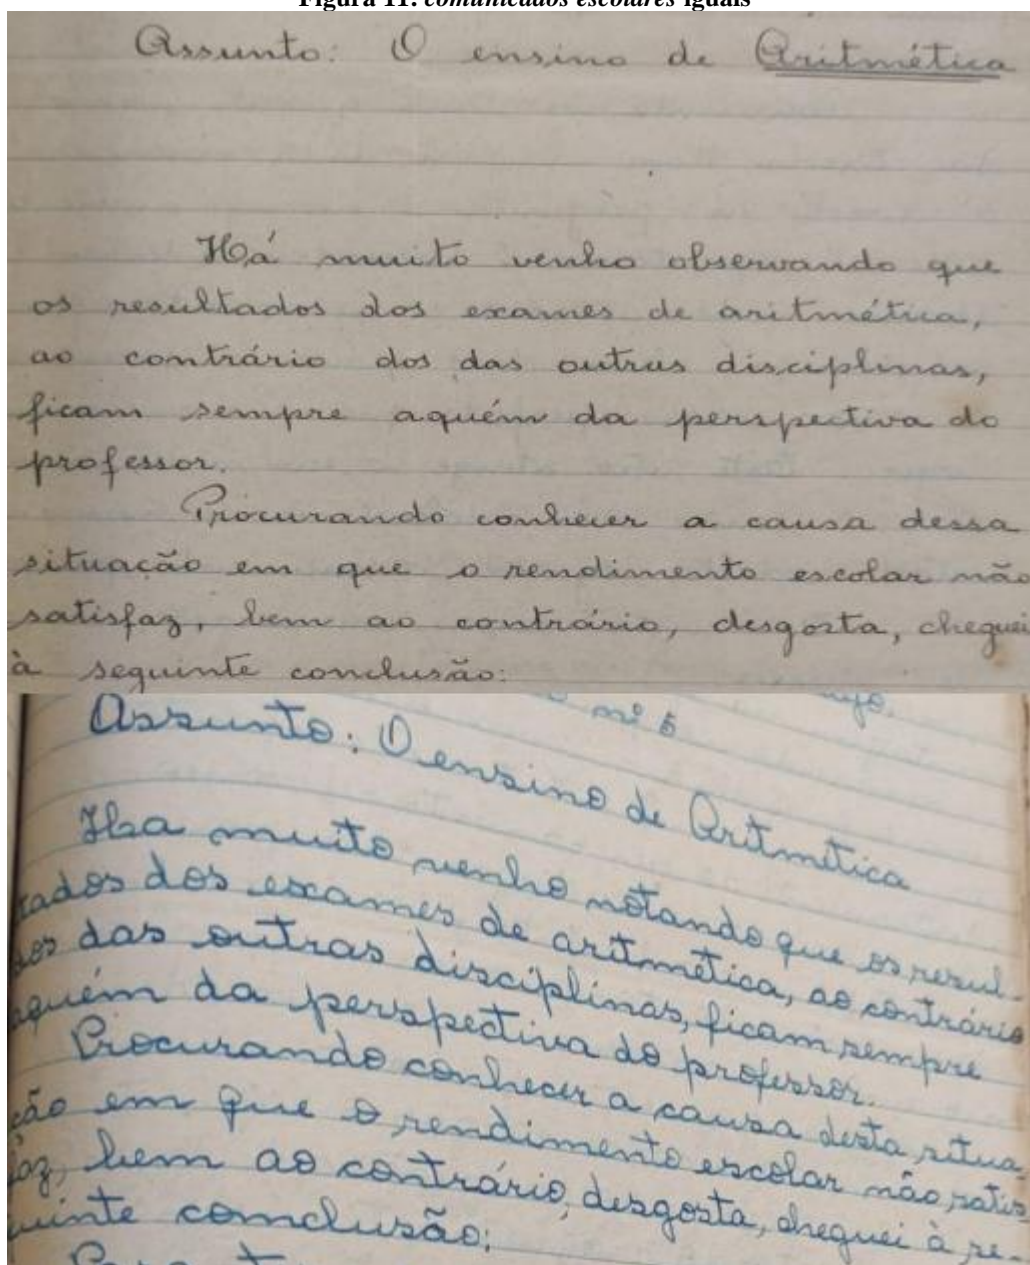 Figura 11: comunicados escolares iguais
Assunto: O ensino de Aritmética
Há muito venho observando que
os resultados dos exames de aritmética,
ao contrário dos das outras disciplinas,
ficam sempre aquém da perspectiva do
professor.
Procurando conhecer a causa dessa
situação em que o rendimento escolar não
satisfaz, bem ao contrário, desgosta, cheguei
à seguinte conclusão:
nº 5
Assunto: O ensino de Aritmética
Ha muito venho notando que os resul-
tados dos exames de aritmética, ao contrário
dos das outras disciplinas, ficam sempre
aquém da perspectiva do professor.
Procurando conhecer a causa desta situa
ção em que o rendimento escolar não satis
faz, bem ao contrário, desgosta, cheguei à se-
guinte comclusão: